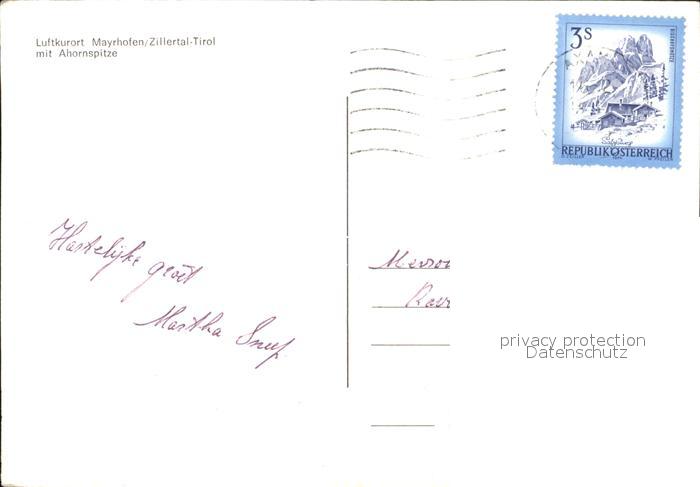 Luftkurort Mayrhofen/Zillertal-Tirol
mit Ahornspitze
3S
REPUBLIK ÖSTERREICH
Hartelijke groet
Martha
privacy protection
Datenschutz